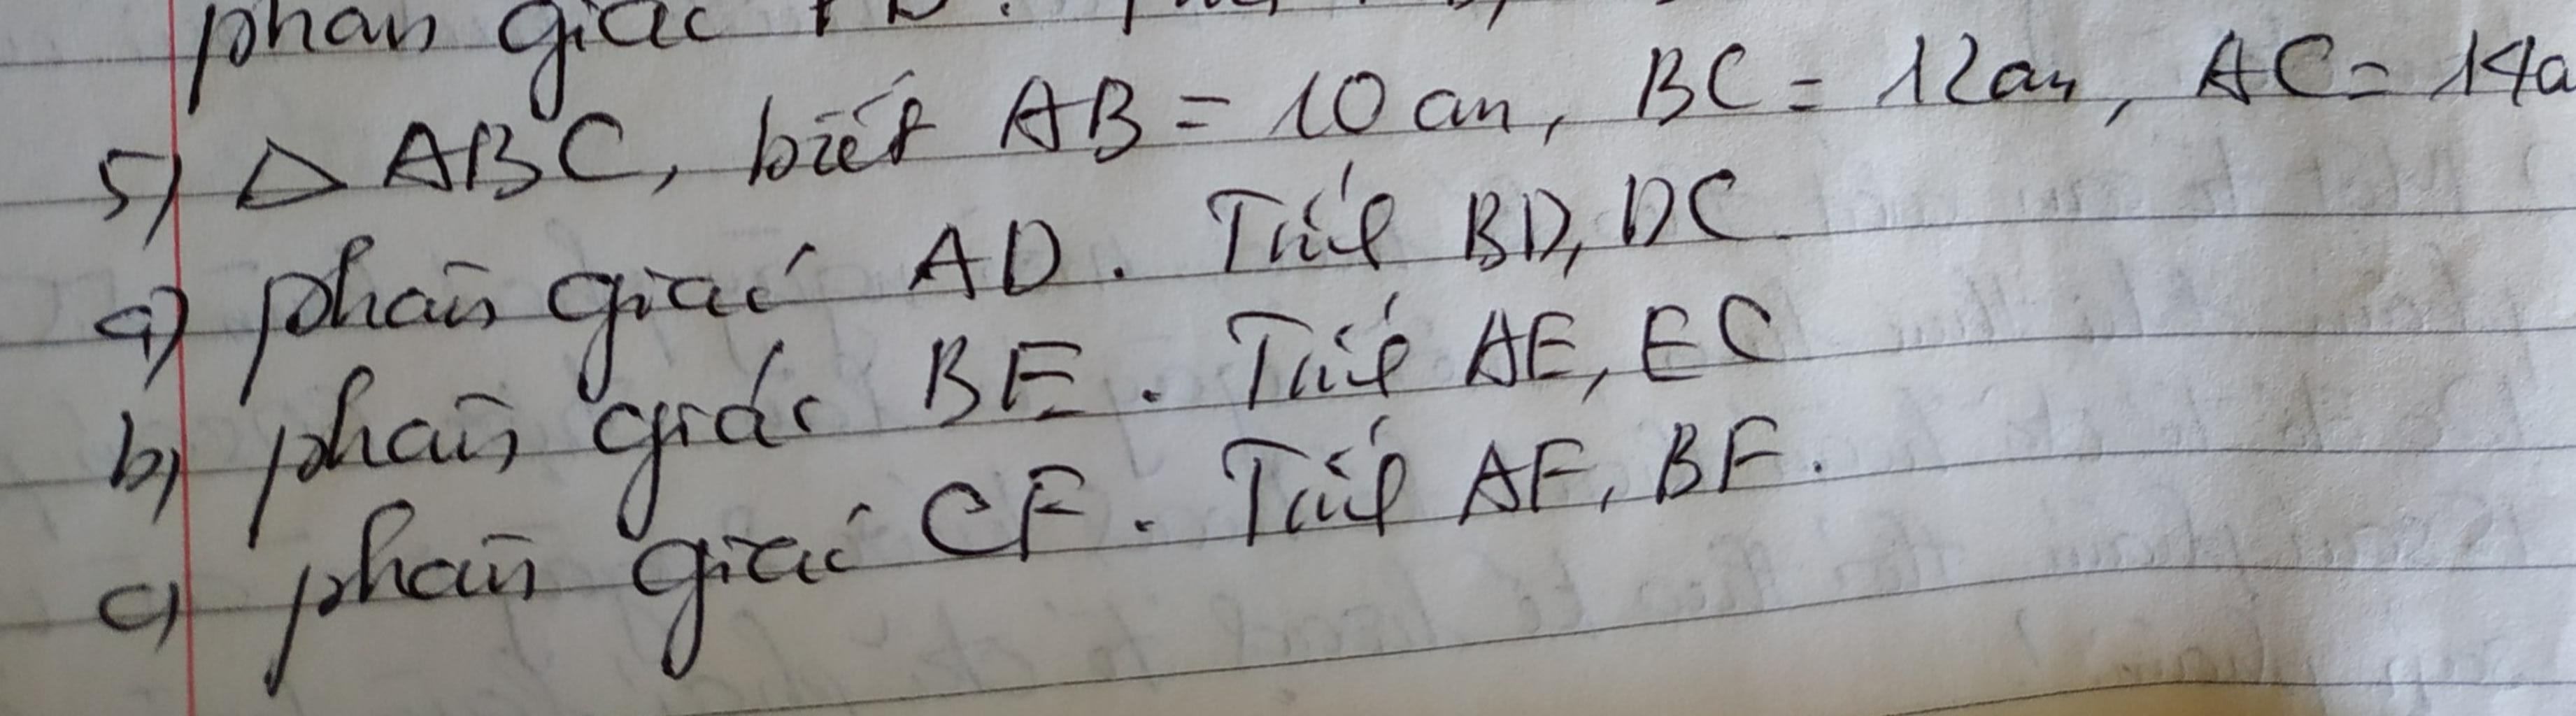 phân giác
5) △ ABC, biết AB = 10 cm, BC = 12 cm, AC = 14c
a) phân giác AD. Tính BD, DC
b) phân giác BE. Tính AE, EC
c) phân giác CF. Tính AF, BF.